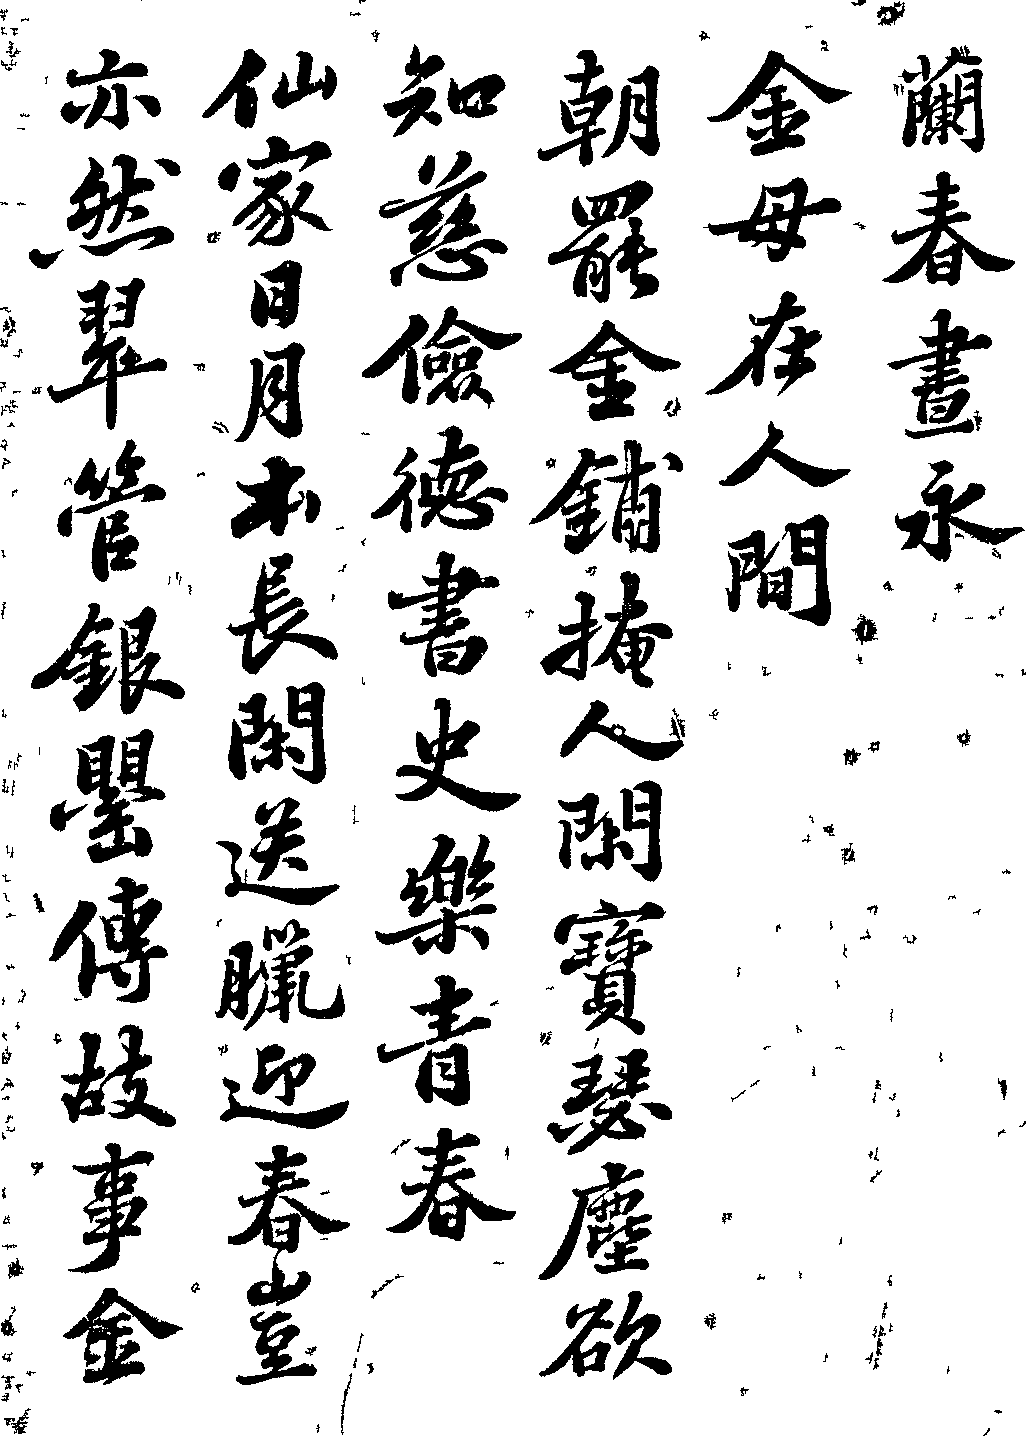 蘭春晝永
金母在人間
朝罷金鋪掩人閑寶瑟塵欲
知慈儉德書史樂青春
仙家日月本長閑送臘迎春豈
亦然翠管銀罌傳故事金